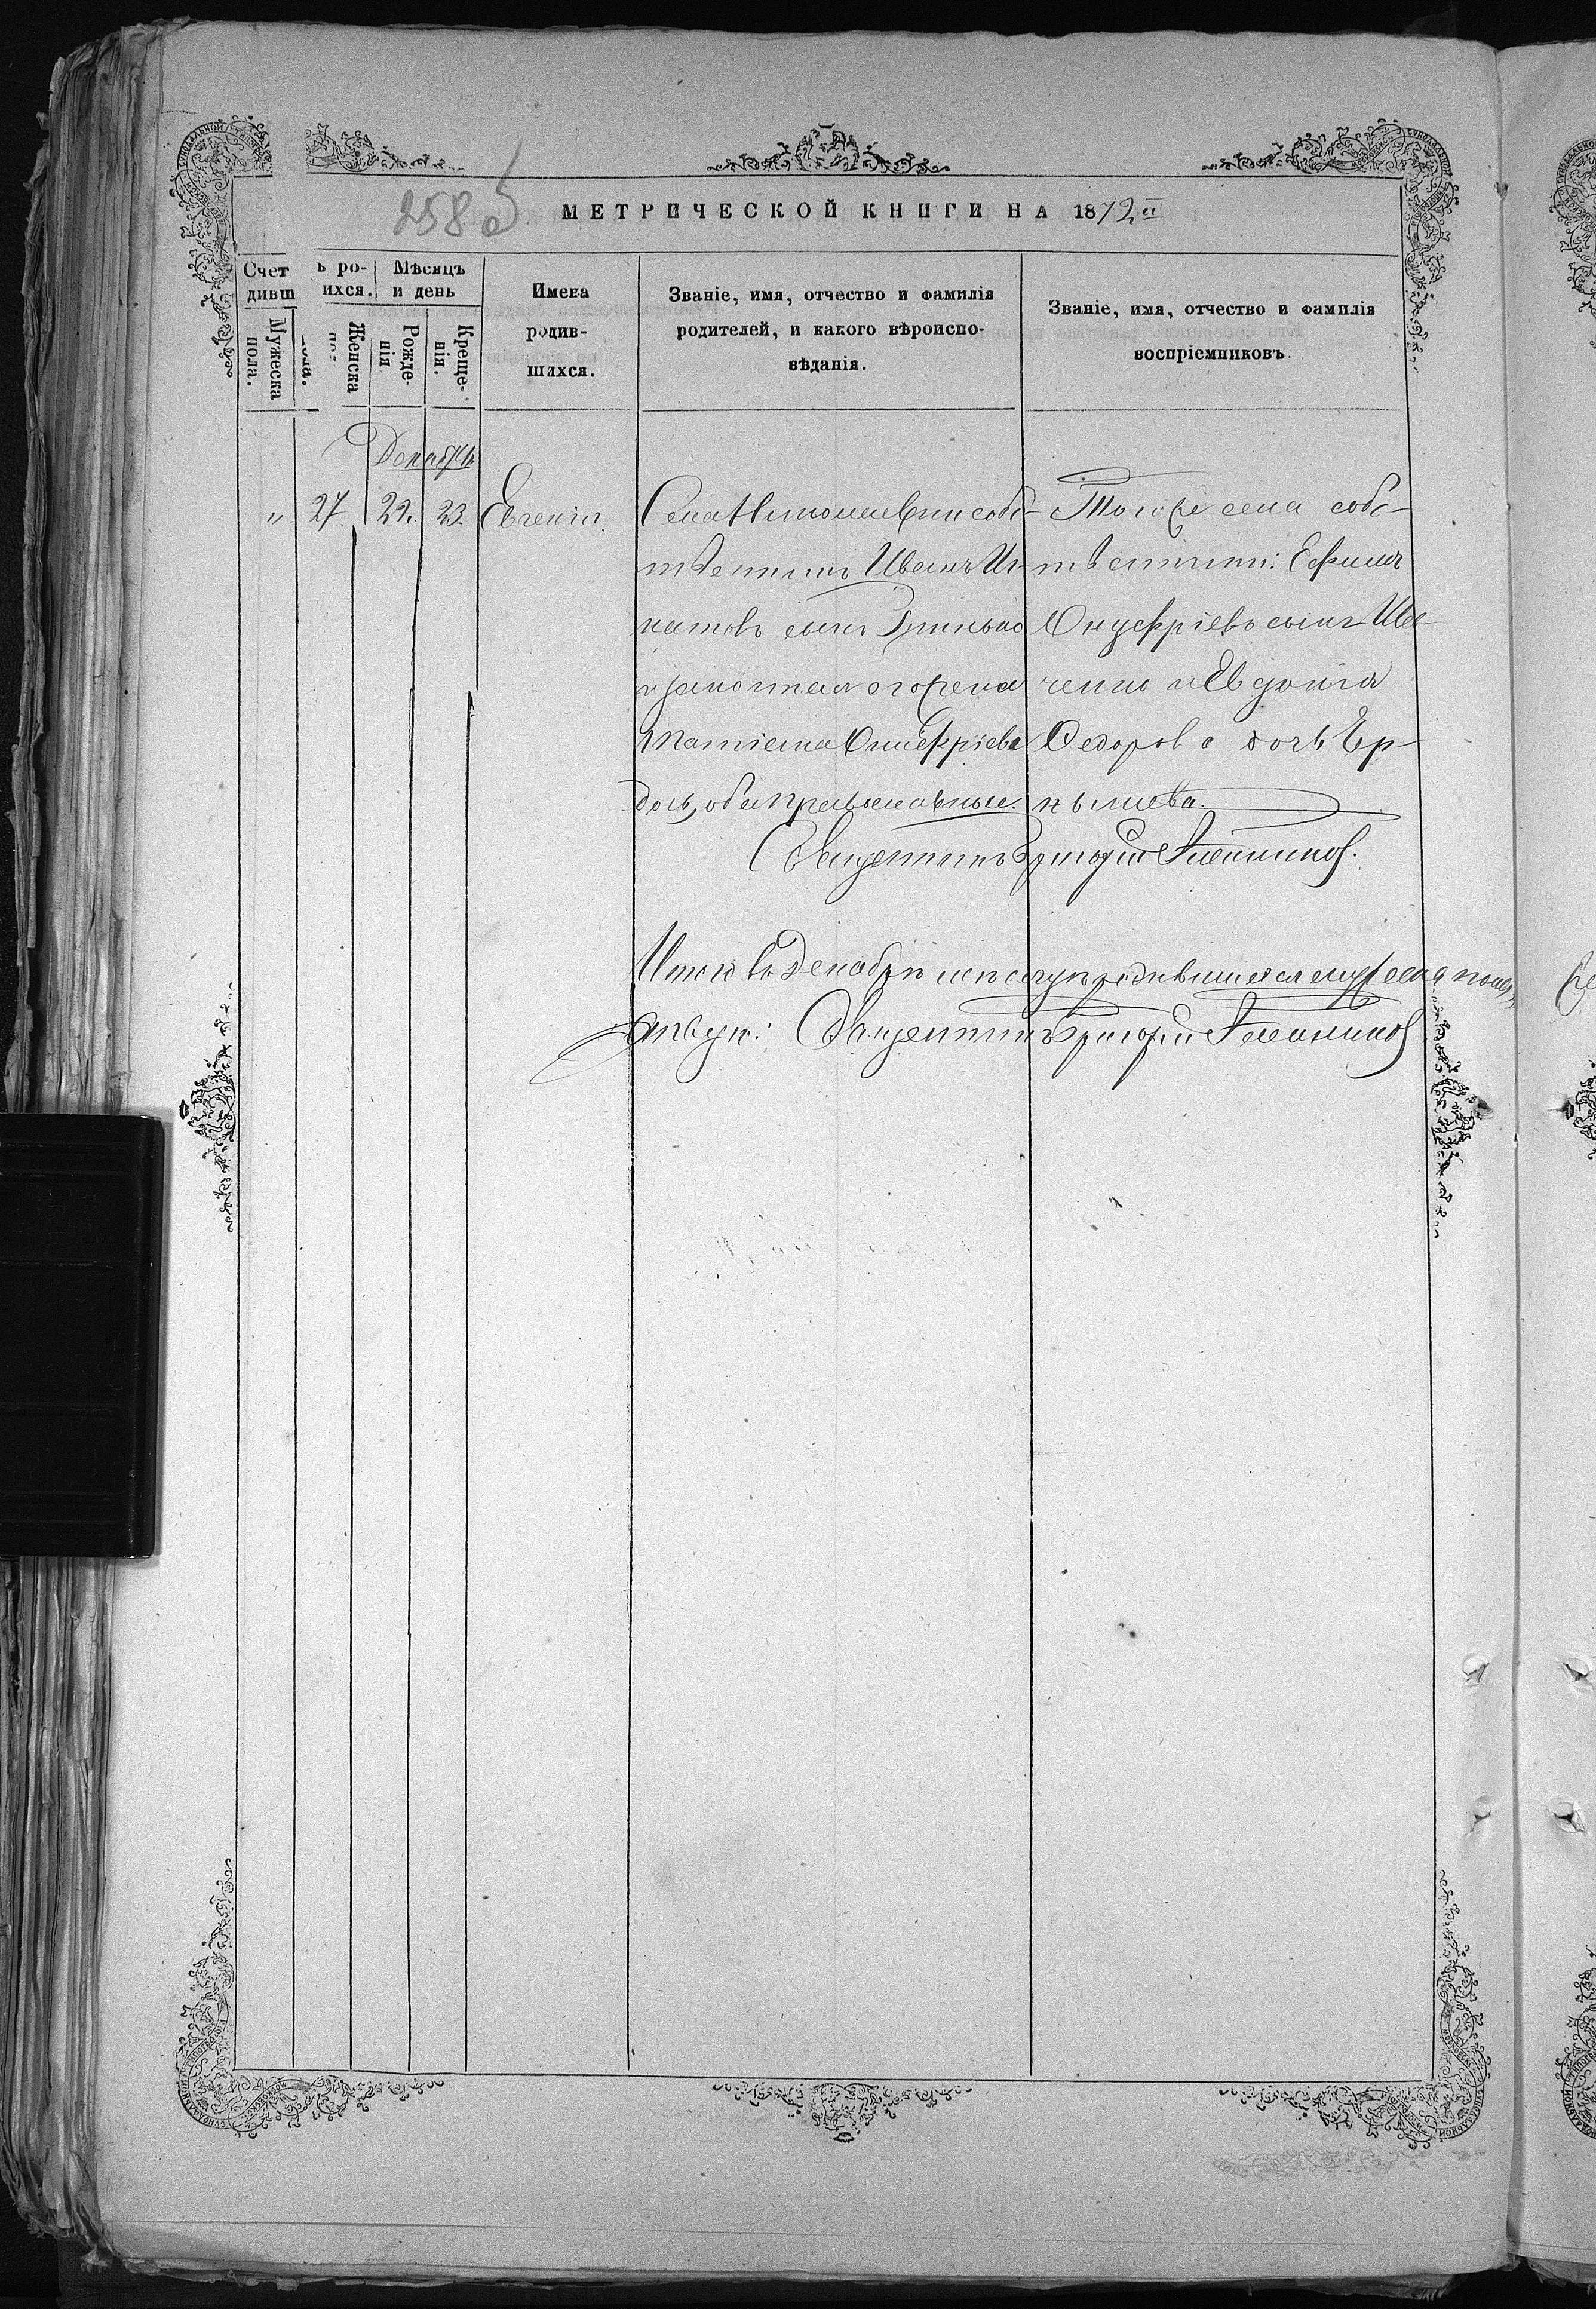 258 об
МЕТРИЧЕСКОЙ КНИГИ НА 1872 й
Счет ъ ро-
дивш ихся.
Мужеска пола.
Женска
Мѣсяцъ и день
Рожде-нія
Креще-нія.
Имена родив-шихся.
Званіе, имя, отчество и фамилія
родителей, и какого вѣроиспо-
вѣданія.
Званіе, имя, отчество и фамилія
воспріемниковъ.
Декабрь
" 27. 22. 23. Евгенія.
Села собс-
твенникъ Иванъ Иг-
натовъ сынъ Гринько
и законная его жена
Татіана Онуфріева
дочь, оба православные.
Того же села собс-
твенники: Ефимъ
Онуфріевъ сынъ Ше-
ченко и Евдокія
Федорова дочь Ер-
Священникъ Григорій
Итого въ Декабрѣ мѣсяцѣ родившихся мужеска пола
двух: Священникъ Григорій